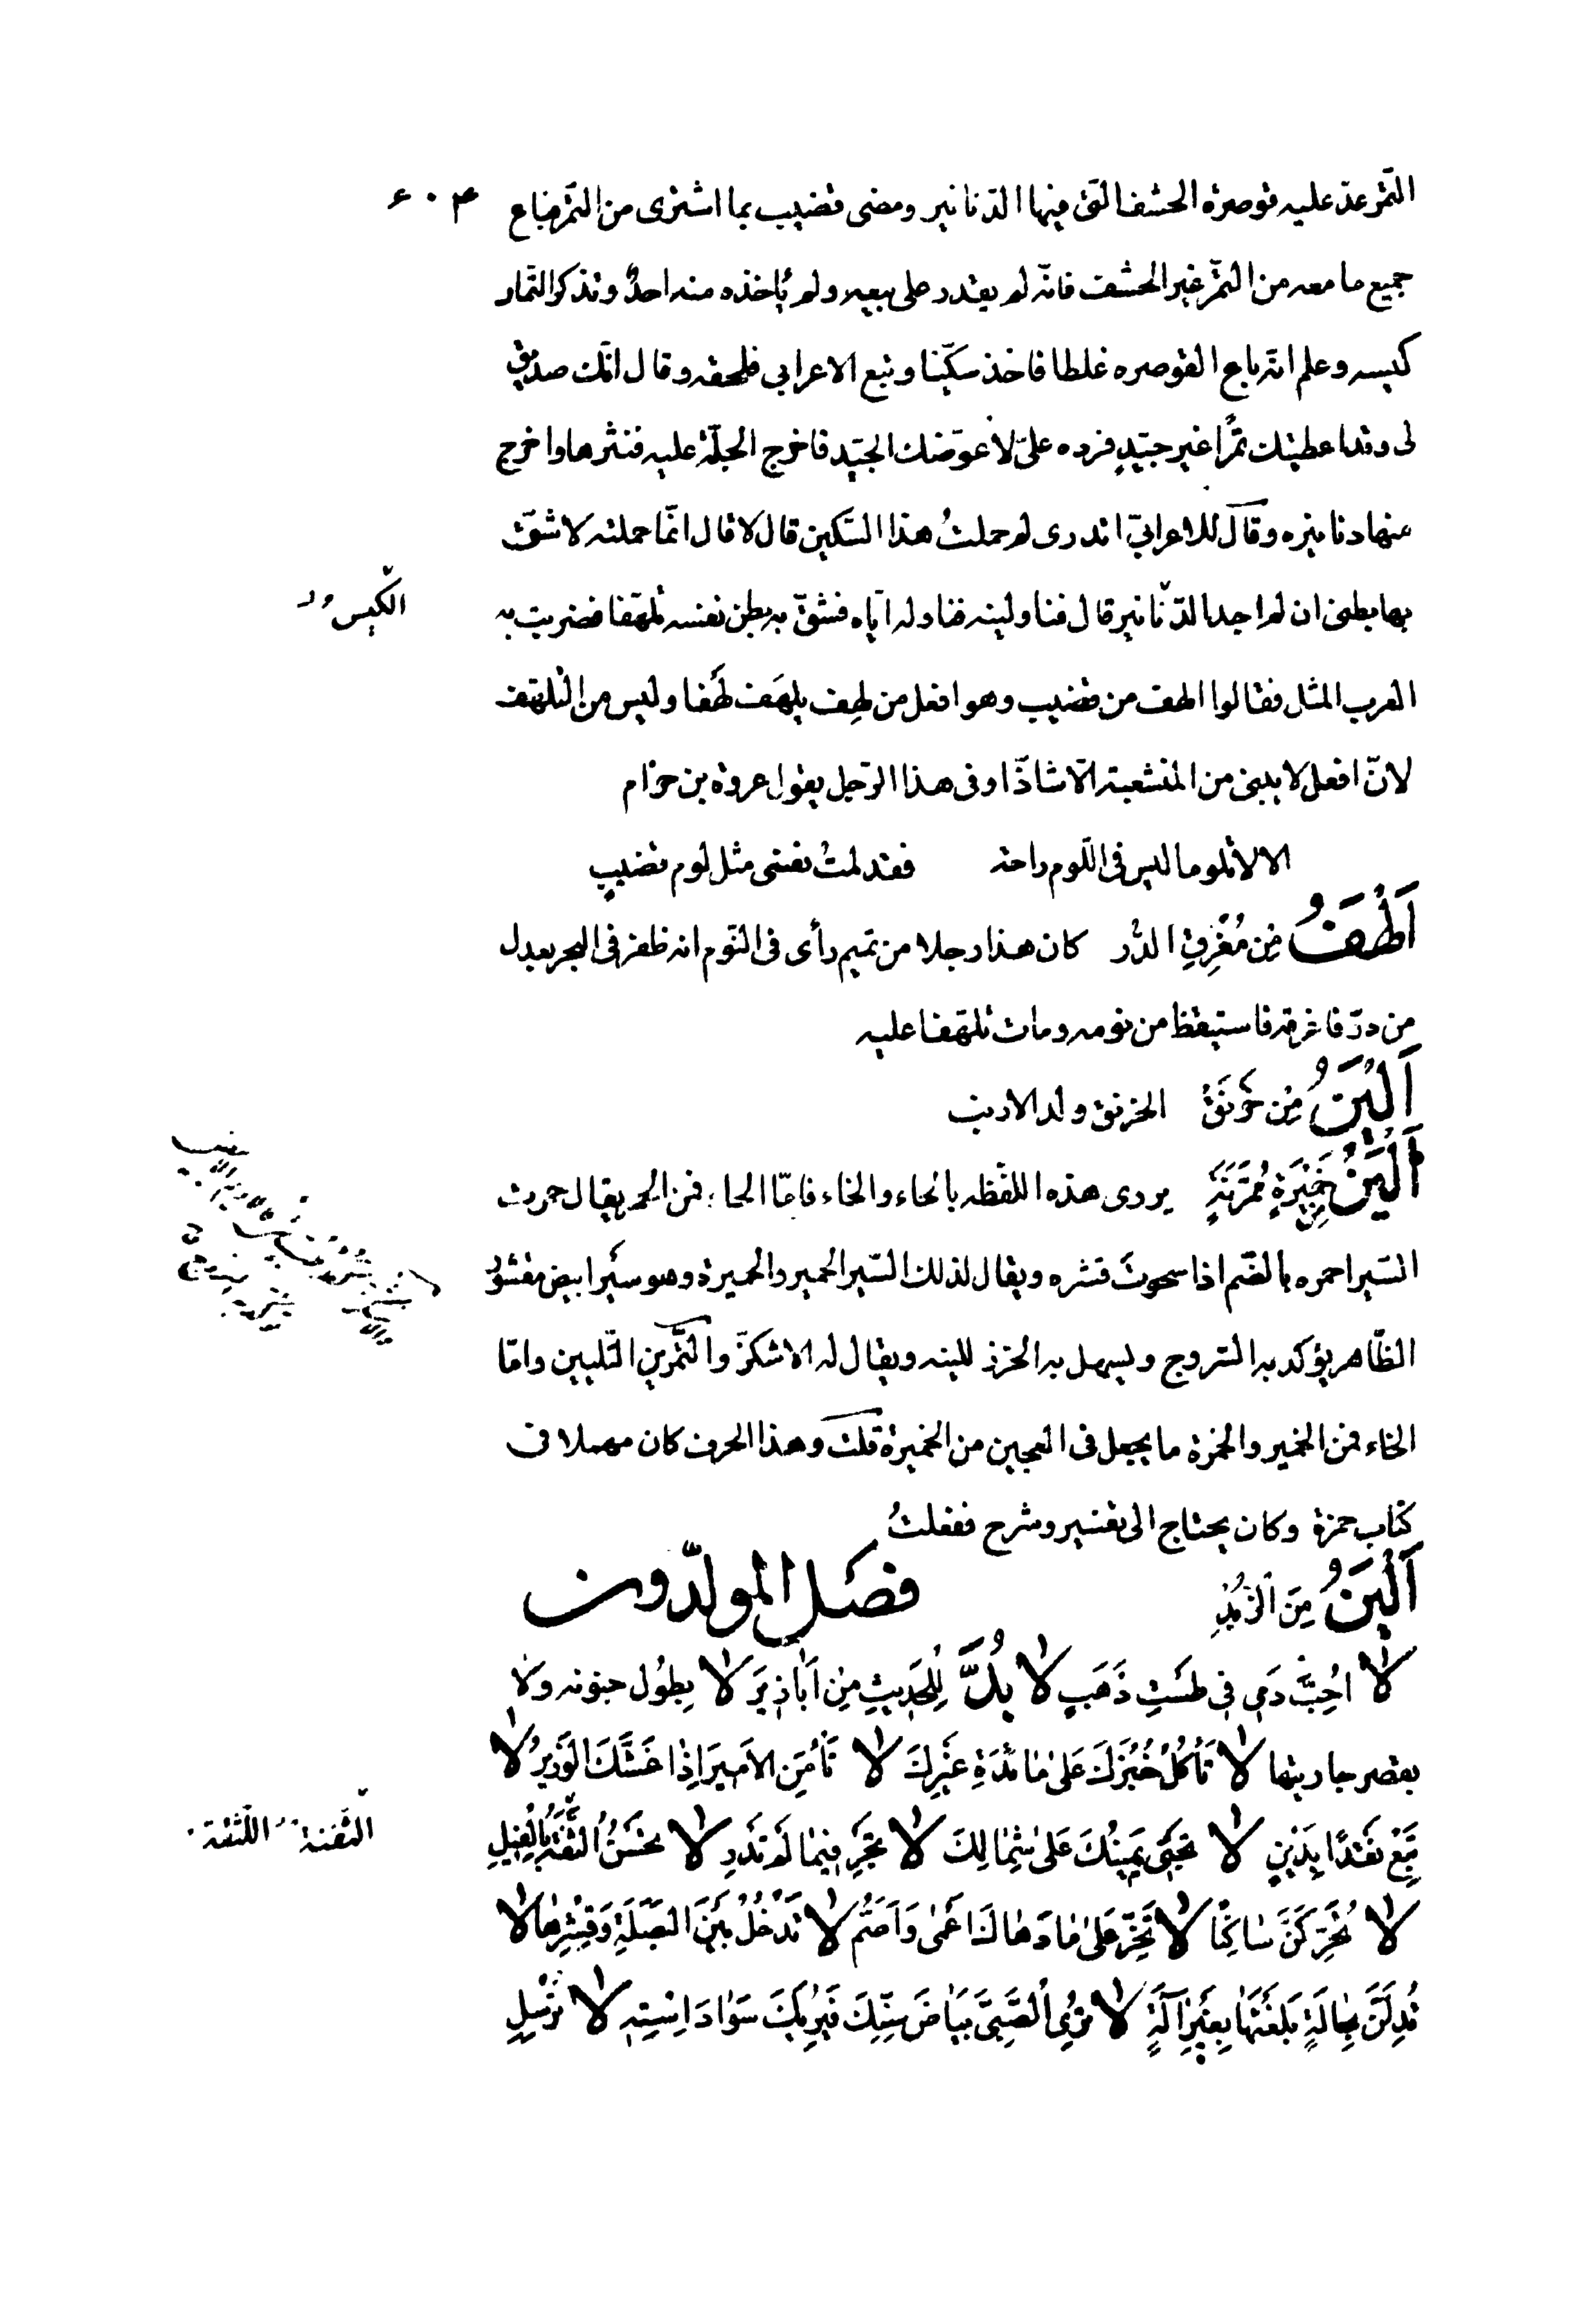 التّمر عدّ عليه قوصرة الحشف الّتى فيها الدّنانير ومضى قضيب بما اشترى من التّمر فباع
جميع ما معه من التّمر غير الحشف فانّه لم يقدر على بيعه ولم ياخذه منه احدٌ وتذكر التمّار
كيسه وعلم انّه باع القوصره غلطا فاخذ سكّينا وتبع الاعرابى فلحقه وقال انّك صديق
لى وقد اعطيتك تمرًا غير جيّدٍ فرده علىّ لاعوّضك الجيّد فاخرج الجلّة عليه فنثرها واخرج
منها دنانيره وقال للاعرابىّ اتدرى لم حملتُ هذا السّكين قال لا قال انّما حملته لاشقّ
بها بطنى ان لم اجد الدّنانير قال فناولينه فناوله ايّاه فشقّ به بطن نفسه تلهّفا فضربت به
الكَيس
العرب المثل فقالوا الهف من قضيب وهو افعل من لهِف يلهَف لهَفا وليس من التلهّف
لانّ افعل لا يبنى من المنشعبة الّا شاذّا وفى هذا الرّجل يقول عروة بن حزام
الا لا تلوما ليس فى اللّوم راحة فقد لمتُ نفسى مثل لوم قضيبٍ
اَلْهَفُ مِن مُغْرِقِ الدُّر كان هذا رجلا من تميم رأى فى النّوم انه ظفر فى البحر بعدل
من درّ فاغرقه فاستيقظ من نومه ومات تلهّفا عليه
اَلْيَنُ مِن خِرْنَقٍ الخرنق ولد الارنب
اَلْيَنُ مِن خَمِيرَةٍ مُمَرَّنَةٍ يروى هذه اللفظه بالحاء والخاء فامّا الحاء فمن الحمر يقال حمرت
السّير احمره بالضّم اذا سحوتَ قشره ويقال لذلك السّير الحمير والحميرة وهو سيرٌ ابيض مقشورُ
الظّاهر يؤكد به السّروج ويسهل به الخرز للينه ويقال له الاشكزّ والتّمرين التّليين وامّا
الخاء فمن الخمير والخمرة ما يجعل فى العجين من الخميرة قلت وهذا الحرف كان مهملا فى
كتاب حمزة وكان يحتاج الى تفسير وشرح ففعلتُ
اَلْيَنُ مِنَ الزُّبْدِ فصَل المولّدون
لا اُحِبُّ دَمِى فى طَسَتِ ذَهَبٍ لا بُدَّ لِلْحَدِيثِ مِن اَبَازِيرَ لا يطُول حيوته ولا
يقصر جاريتها لا تَأكُلْ خُبْزَكَ عَلىٰ مٰائدَةِ غَيْرِكَ لا تَأمَنِ الاَمِيرَ اِذٰا غَشَّكَ الوَزيرُ لا
تَبِعْ نَقْدًا بِدَيْنٍ لا تجنى يَمِينُكَ عَلىٰ شِمٰالِكَ لا تَجْرِ فِيمٰا لَم تَدْرِ لا تُحْسَنُ الثّقَةُ بالْفِيلِ
الثّفنة اللّثقة
لا تُحَرِّكَنَّ سٰاكِنًا لا تَدْخُلْ بَينَ البَصَلَةِ وَقِشْرِهٰا لا
تُدِلَّنَّ بِحٰالَةٍ بَلَغْتَهٰا بِغَيْرِ اٰلَةٍ لا تُرِى الصَّبِىَّ بَيَاضَ سِنِّكَ فَيُرِيكَ سَوٰادَ اِسْتِهِ لا تُرْسِلِ